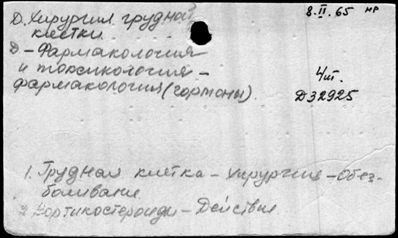 Д. Хирургия грудной
клетки
8.II.65 нр
Д - Фармакология
и токсикология -
фармакология (гормоны).
4 т.
Д32925
1. Грудная клетка - хирургия - Обез-
боливание
2. Кортикостероиды - Действие